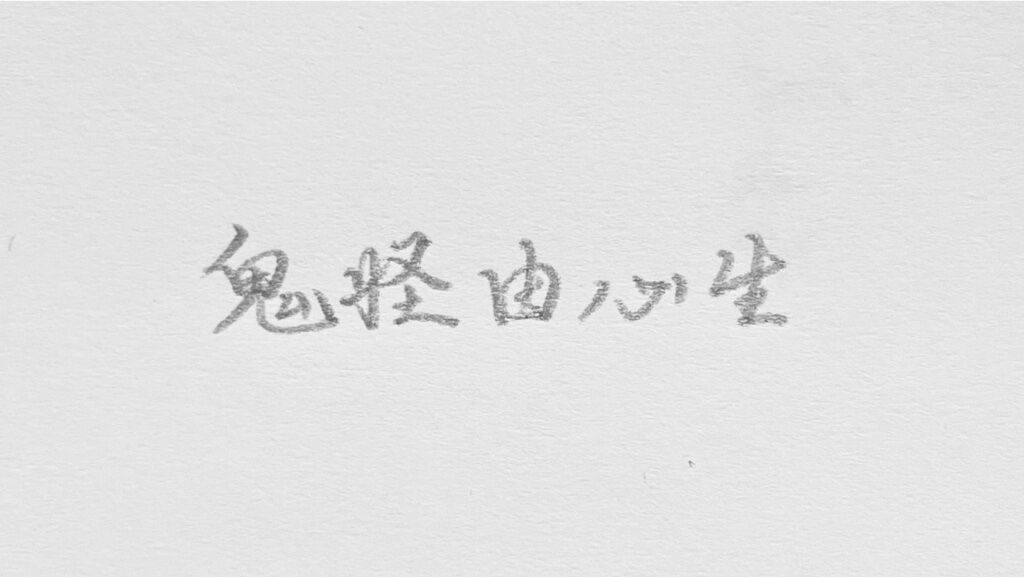 鬼怪由心生